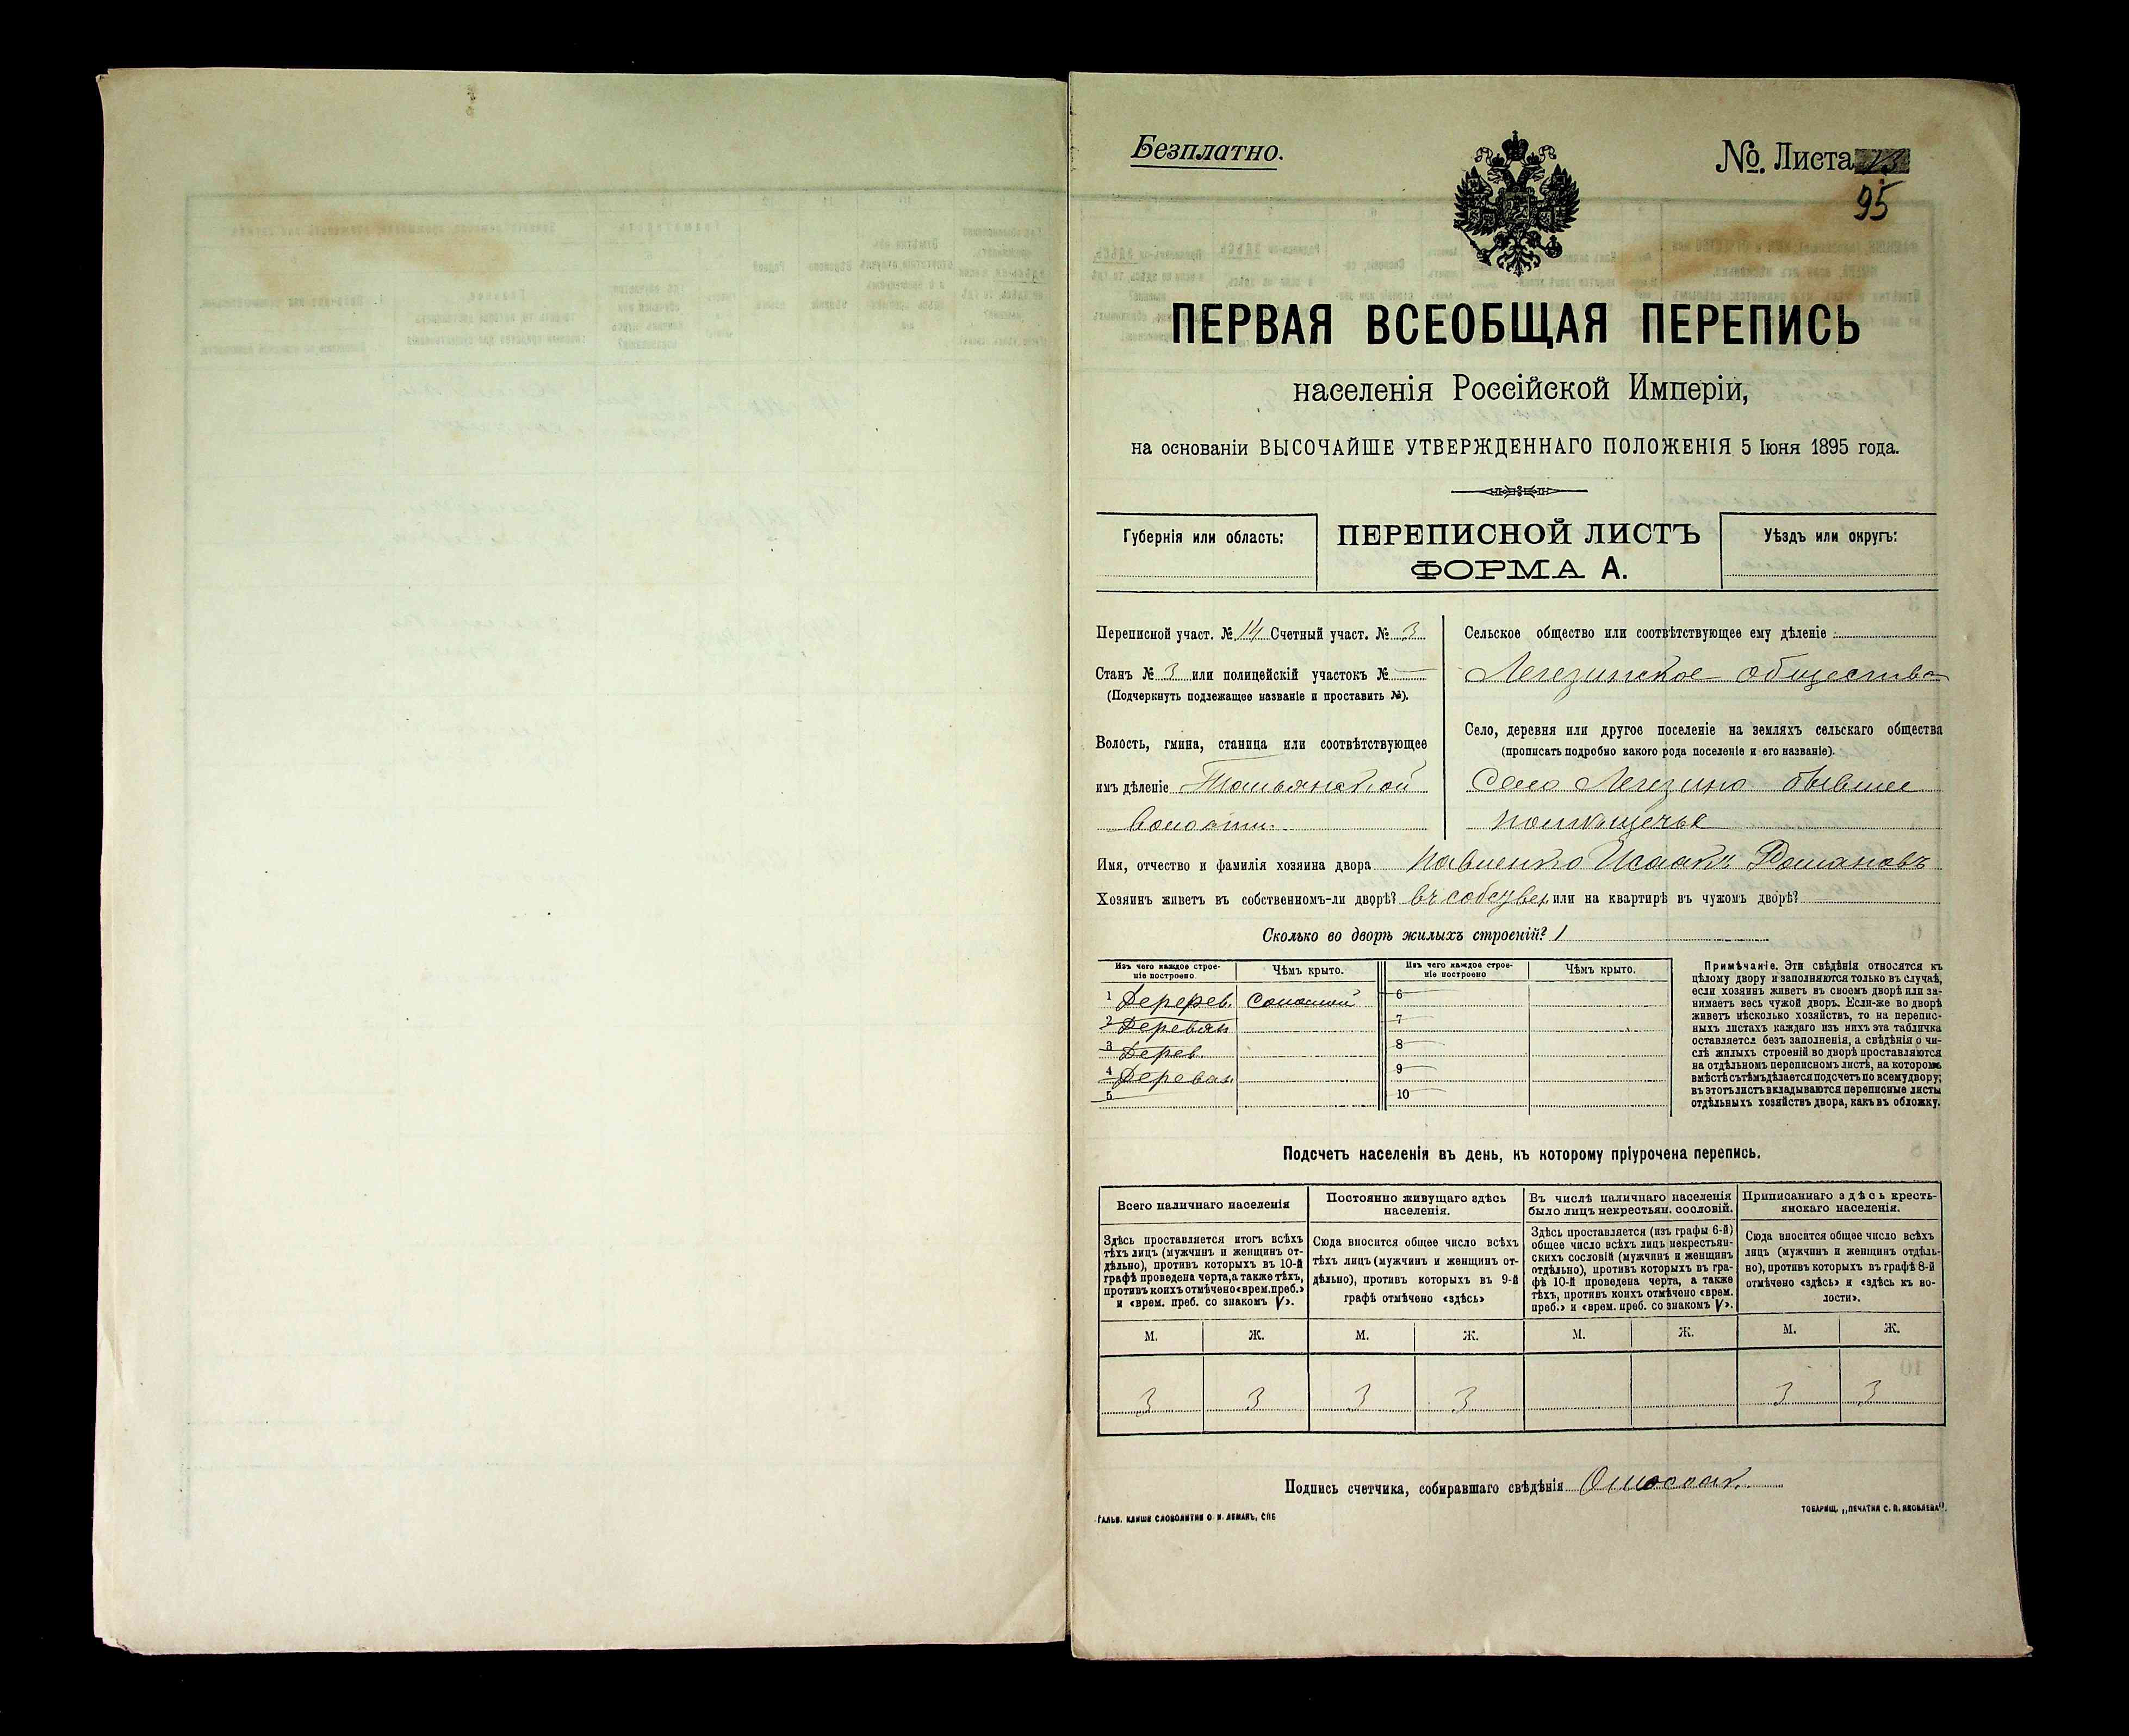 Безплатно.
№. Листа 13
95
ПЕРВАЯ ВСЕОБЩАЯ ПЕРЕПИСЬ
населенія Россійской Имперіи,
на основаніи ВЫСОЧАЙШЕ УТВЕРЖДЕННАГО ПОЛОЖЕНІЯ 5 Іюня 1895 года.
Губернія или область:
ПЕРЕПИСНОЙ ЛИСТЪ
ФОРМА А.
Уѣздъ или округъ:
Переписной участ. № 14 Счетный участ. № 3
Станъ № 3 или полицейскій участокъ № —
(Подчеркнуть подлежащее названіе и проставить №).
Волость, гмина, станица или соотвѣтствующее
имъ дѣленіе Тальянской
волости.
Сельское общество или соотвѣтствующее ему дѣленіе
Легезинское общество
Село, деревня или другое поселеніе на земляхъ сельскаго общества
(прописать подробно какого рода поселеніе и его названіе).
Село Легезино бывшее
помѣщечье
Имя, отчество и фамилія хозяина двора Павленко Исаакъ Романовъ
Хозяинъ живетъ въ собственномъ-ли дворѣ? въ собств или на квартирѣ въ чужомъ дворѣ?
Сколько во дворѣ жилыхъ строеній? 1
Изъ чего каждое строеніе построено.
Чѣмъ крыто.
Изъ чего каждое строеніе построено
Чѣмъ крыто.
1 Деререв. Соломой
2 Деревян
3 Дерев.
4 Деревян
5
6
7
8
9
10
Примѣчаніе. Эти свѣдѣнія относятся къ
цѣлому двору и заполняются только въ случаѣ,
если хозяинъ живетъ въ своемъ дворѣ или за-
нимаетъ весь чужой дворъ. Если-же во дворѣ
живетъ нѣсколько хозяйствъ, то на перепис-
ныхъ листахъ каждаго изъ нихъ эта табличка
оставляется безъ заполненія, а свѣдѣнія о чи-
слѣ жилыхъ строеній во дворѣ проставляются
на отдѣльномъ переписномъ листѣ, на которомъ
вмѣстѣ съ тѣмъ дѣлается подсчетъ по всему двору;
въ этотъ листъ вкладываются переписные листы
отдѣльныхъ хозяйствъ двора, какъ въ обложку.
Подсчетъ населенія въ день, къ которому пріурочена перепись.
Всего наличнаго населенія
Здѣсь проставляется итогъ всѣхъ
тѣхъ лицъ (мужчинъ и женщинъ от-
дѣльно), противъ которыхъ въ 10-й
графѣ проведена черта, а также тѣхъ,
противъ коихъ отмѣчено «врем. преб.»
и «врем. преб. со знакомъ V».
Постоянно живущаго здѣсь
населенія.
Сюда вносится общее число всѣхъ
тѣхъ лицъ (мужчинъ и женщинъ от-
дѣльно), противъ которыхъ въ 9-й
графѣ отмѣчено «здѣсь»
Въ числѣ наличнаго населенія
было лицъ некрестьян. сословій.
Здѣсь проставляется (изъ графы 6-й)
общее число всѣхъ лицъ некрестьян-
скихъ сословій (мужчинъ и женщинъ
отдѣльно), противъ которыхъ въ гра-
фѣ 10-й проведена черта, а также
тѣхъ, противъ коихъ отмѣчено «врем.
преб.» и «врем. преб. со знакомъ V».
Приписаннаго здѣсь кресть-
янскаго населенія.
Сюда вносится общее число всѣхъ
лицъ (мужчинъ и женщинъ отдѣль-
но), противъ которыхъ въ графѣ 8-й
отмѣчено «здѣсь» и «здѣсь къ во-
лости».
М. Ж. М. Ж. М. Ж. М. Ж.
3 3 3 3 3 3
Подпись счетчика, собиравшаго свѣдѣнія
ГАЛЬВ. КЛИШЕ СЛОВОЛИТНИ О. И. ЛЕМАНЪ, СПБ
ТОВАРИЩ. „ПЕЧАТНЯ С. П. ЯКОВЛЕВА".